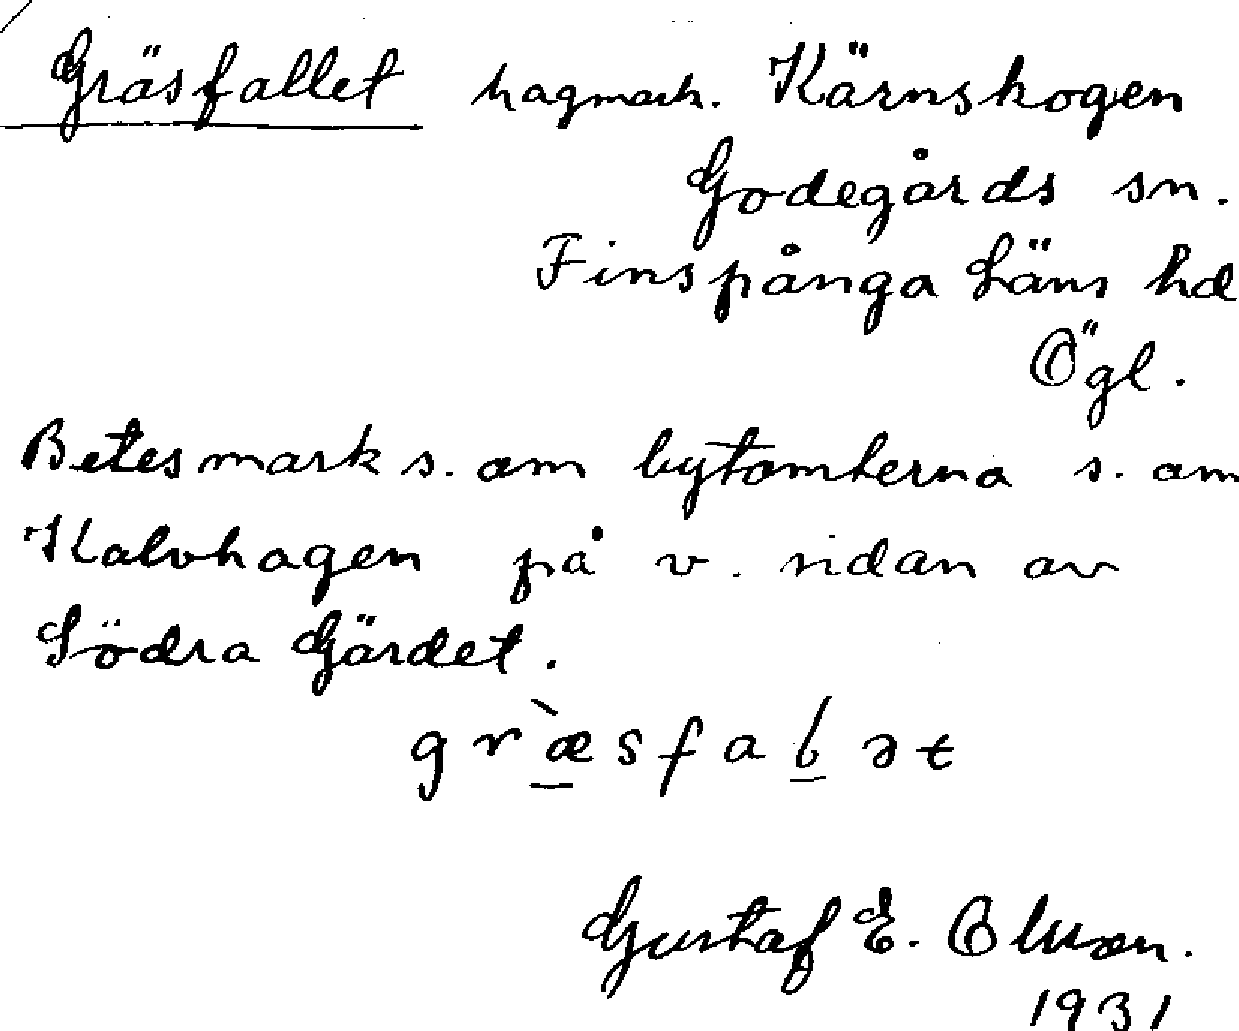 Gräsfallet hagmark. Kärnskogen
Godegårds sn.
Finspånga Läns hd
Ögl.
Betesmark s. om bytomterna s. om
Kalvhagen på v. sidan av
Södra Gärdet.
gr<u>æ̀</u>sfa<u>l</u>ət
Gustaf E. Olsson.
1931